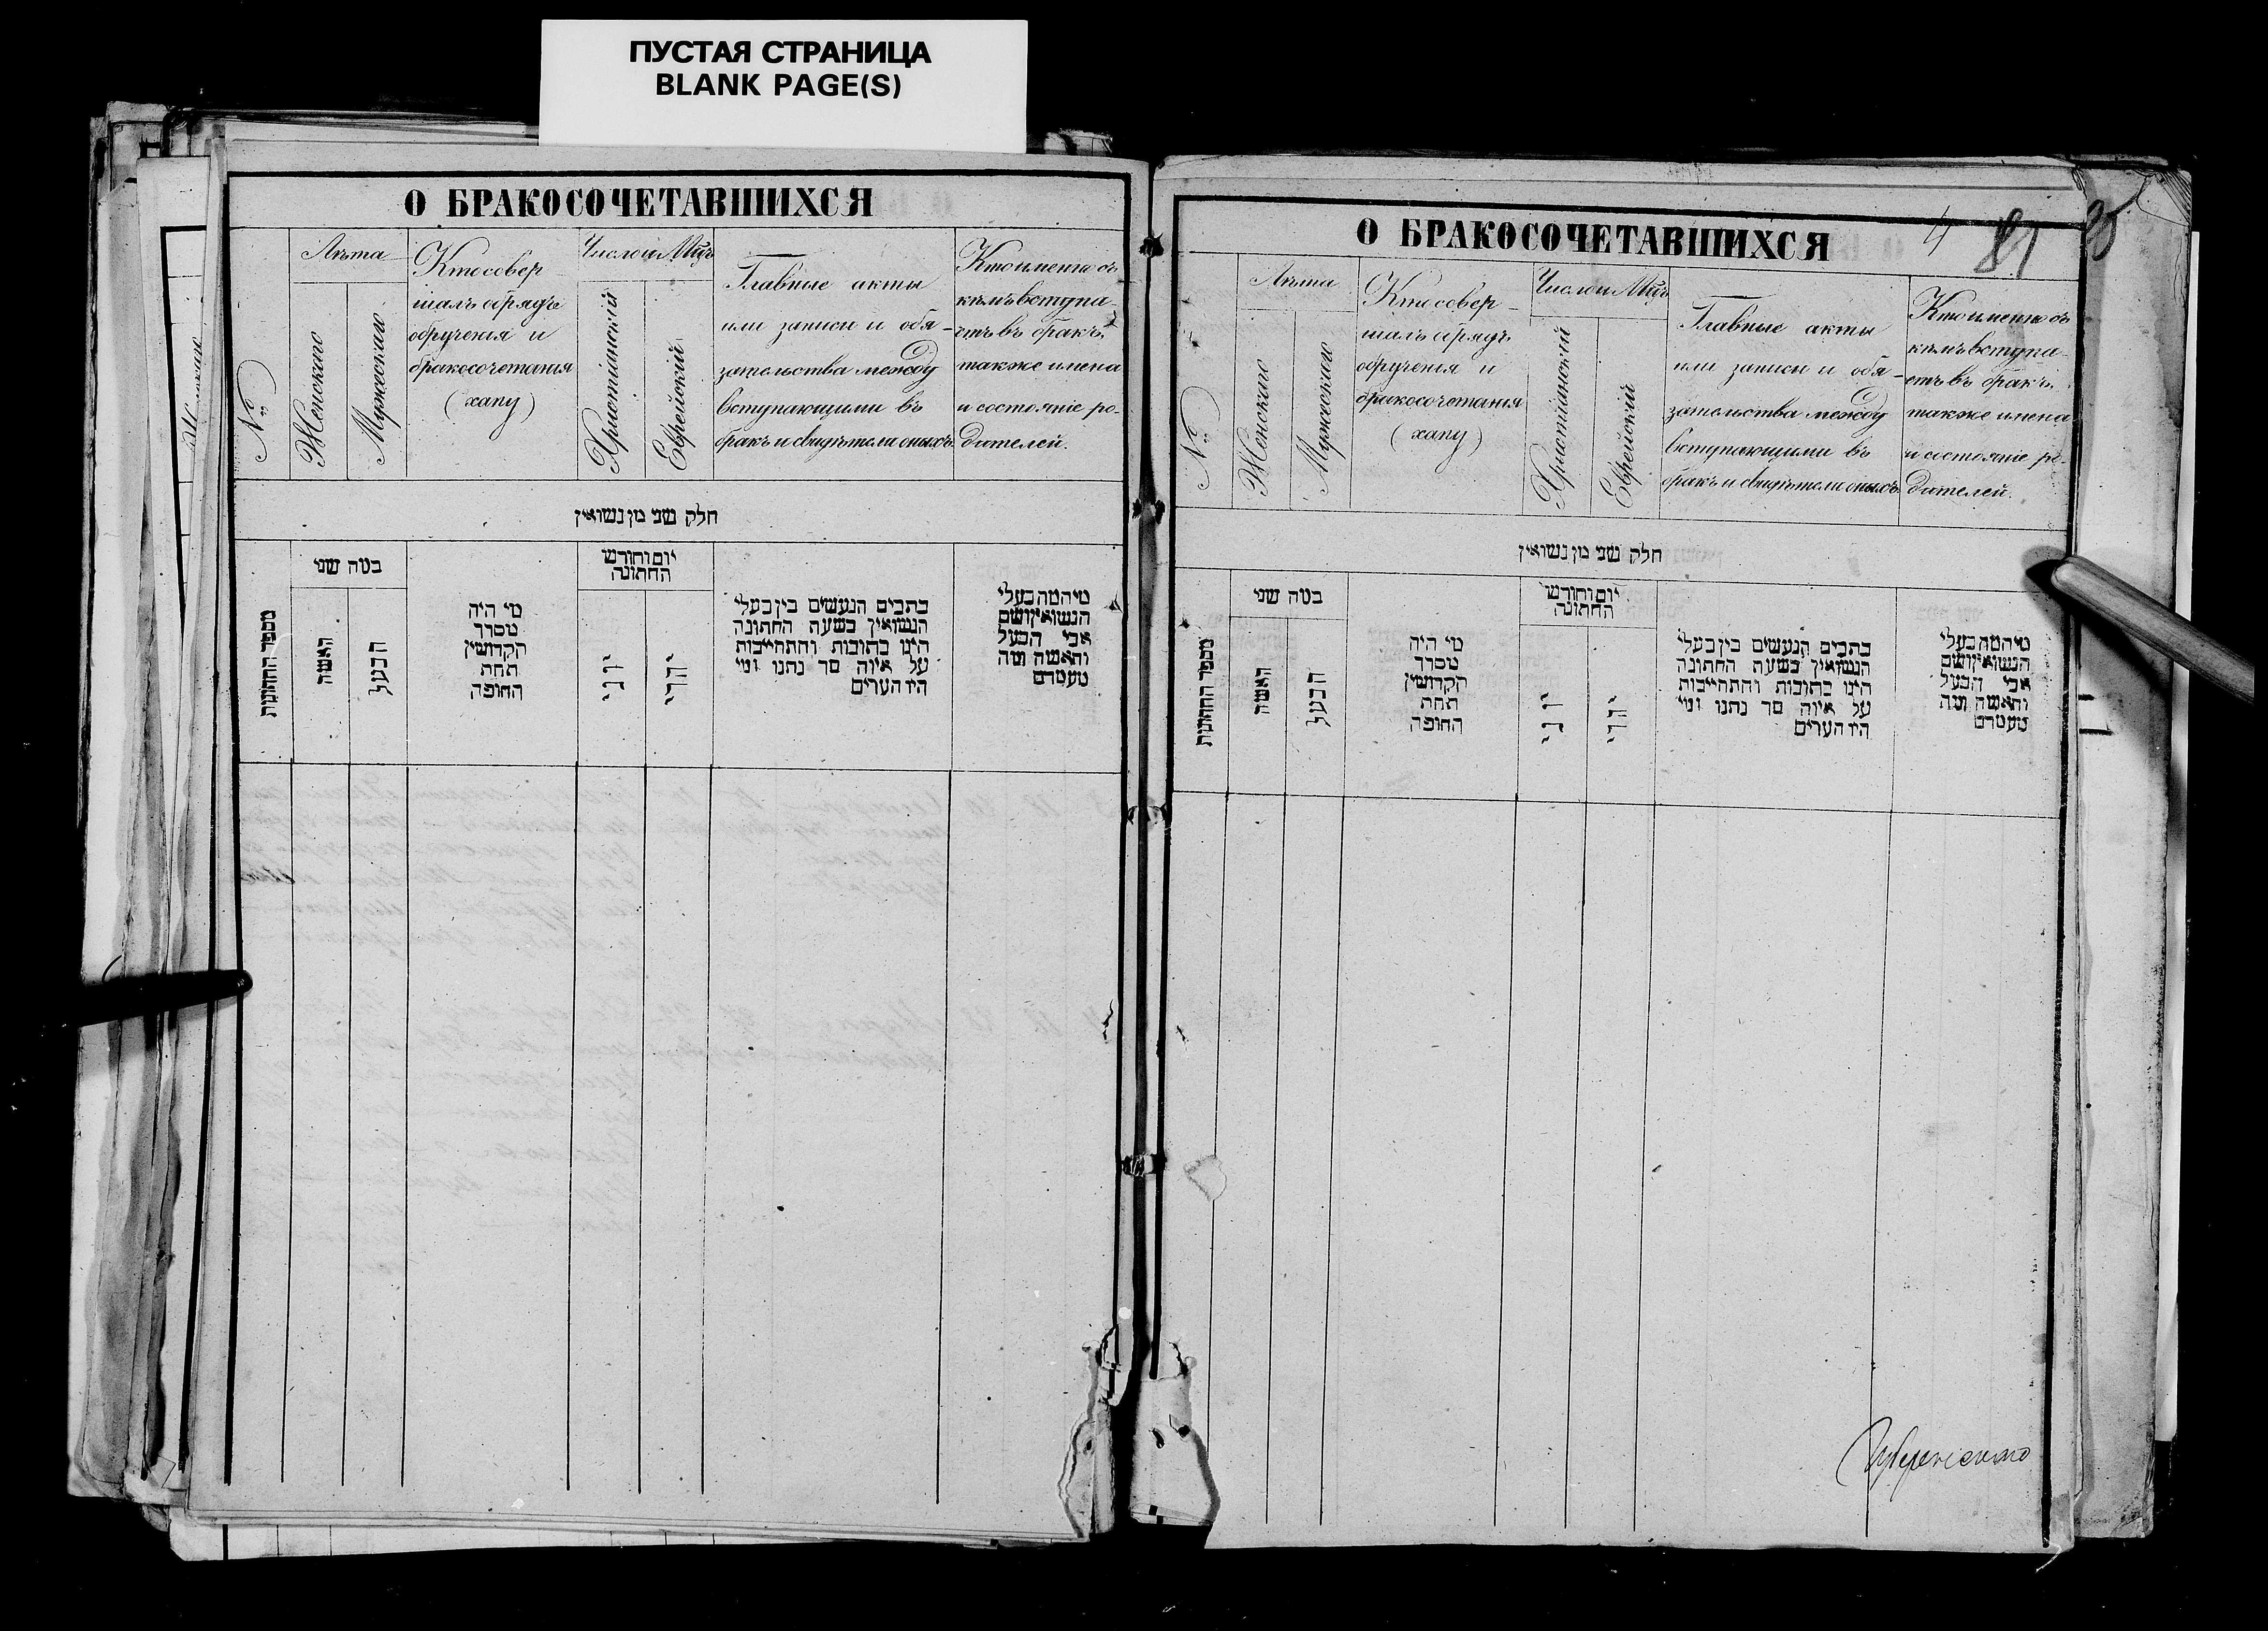 ПУСТАЯ СТРАНИЦА
BLANK PAGE(S)
О БРАКОСОЧЕТАВШИХСЯ
№
Лѣта
Женскаго
Мужескаго
Кто совер-
шалъ обрядъ
обрученія и
бракосочетанія
(хапу)
Число и Мцъ
Христіанскій
Еврейскій
Главные акты
или записи и обя-
зательства между
вступающими въ
бракъ и свидѣтели оныхъ.
Кто именно съ
кѣмъ вступа-
етъ въ бракъ.
также имена
и состояніе ро-
дителей.
חלק שני מן נשואין
מספר החתונות
כמה שני
האשה
הבעל
מי היה
מסדר
הקדושין
תחת
החופה
יום וחודש
החתונה
יוני
יהדי
כתבים הנעשים בין בעלי
הנשואין בשעת החתונה
היינו כתובות והתחייבות
על איזה סך נתנו ומי
היו העדים
מי המה בעלי
הנשואין ושם
אבי הבעל
והאשה ומה
מעמדם
О БРАКОСОЧЕТАВШИХСЯ
4
81
№
Лѣта
Женскаго
Мужескаго
Кто совер-
шалъ обрядъ
обрученія и
бракосочетанія
(хапу)
Число и Мцъ
Христіанскій
Еврейскій
Главные акты
или записи и обя-
зательства между
вступающими въ
бракъ и свидѣтели оныхъ.
Кто именно съ
кѣмъ вступа-
етъ въ бракъ.
также имена
и состояніе ро-
дителей.
חלק שני מן נשואין
מספר החתונות
כמה שני
האשה
הבעל
מי היה
מסדר
הקדושין
תחת
החופה
יום וחודש
החתונה
יוני
יהדי
כתבים הנעשים בין בעלי
הנשואין בשעת החתונה
היינו כתובות והתחייבות
על איזה סך נתנו ומי
היו העדים
מי המה בעלי
הנשואין ושם
אבי הבעל
והאשה ומה
מעמדם